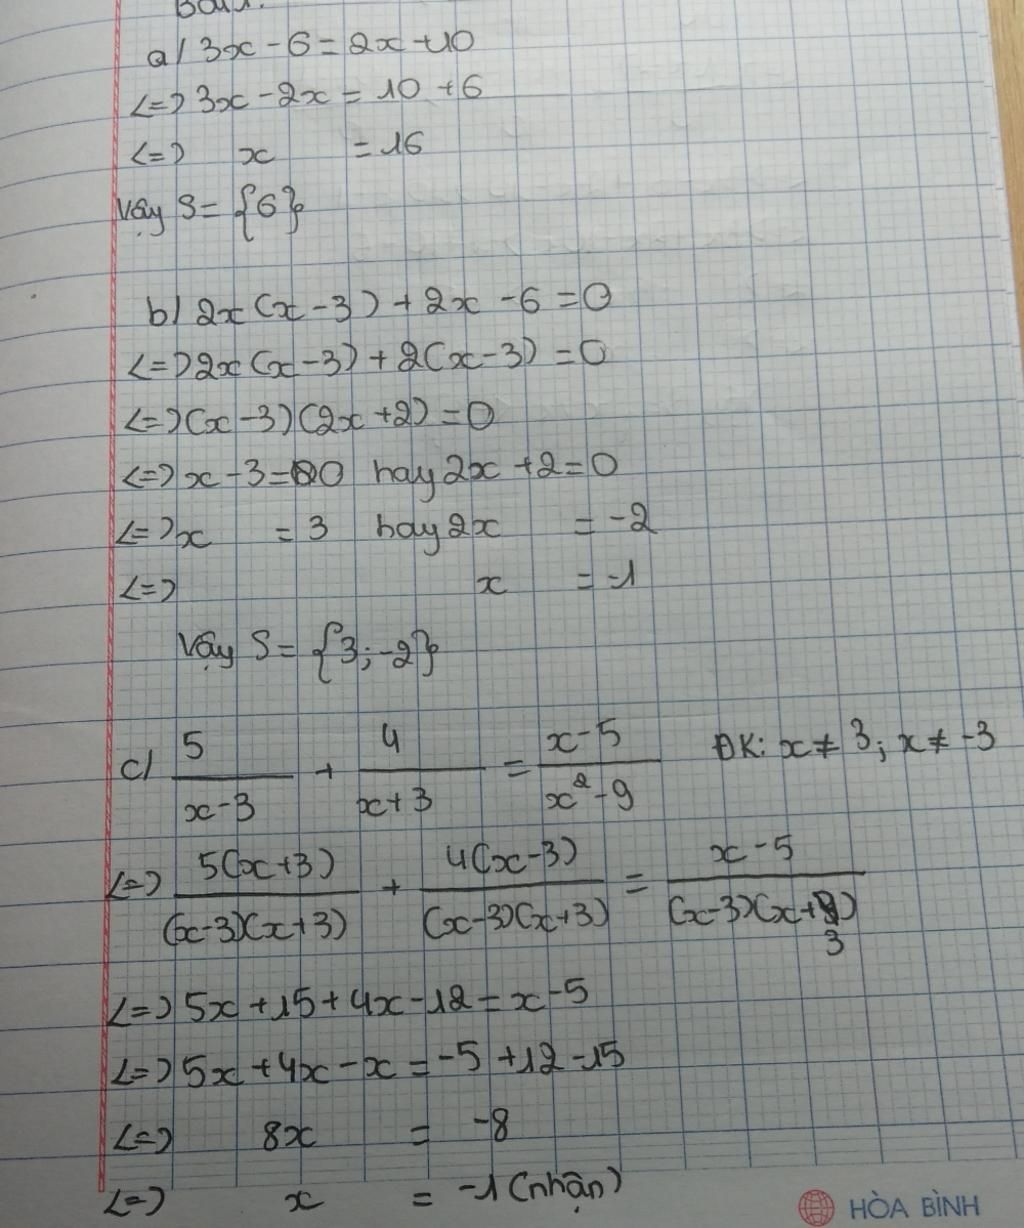 Bài 1:
a) 3x - 6 = 2x + 10
<=> 3x - 2x = 10 + 6
<=> x = 16
Vậy S = {6}
b) 2x(x - 3) + 2x - 6 = 0
<=> 2x(x - 3) + 2(x - 3) = 0
<=> (x - 3)(2x + 2) = 0
<=> x - 3 = 0 hay 2x + 2 = 0
<=> x = 3 hay 2x = -2
<=> x = -1
Vậy S = {3; -2}
c) 5/(x - 3) + 4/(x + 3) = (x - 5)/(x² - 9) ĐK: x ≠ 3; x ≠ -3
<=> 5(x + 3)/((x - 3)(x + 3)) + 4(x - 3)/((x - 3)(x + 3)) = (x - 5)/((x - 3)(x + 3))
<=> 5x + 15 + 4x - 12 = x - 5
<=> 5x + 4x - x = -5 + 12 - 15
<=> 8x = -8
<=> x = -1 (nhận)
HÒA BÌNH